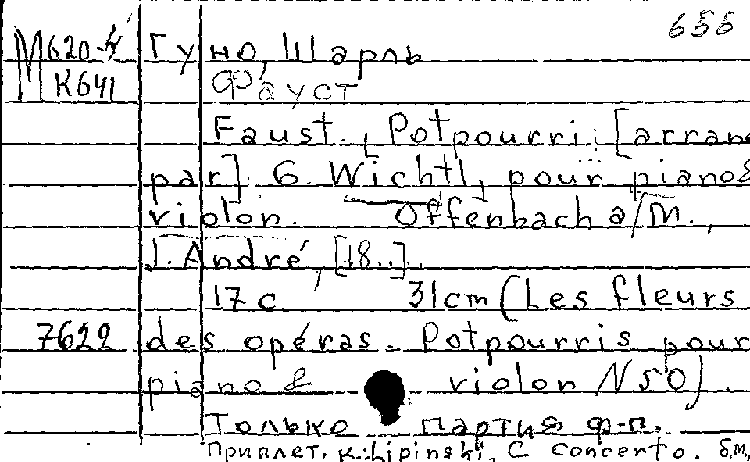 655
M620-4 Гуно, Шарль
K641 Фауст
Faust. Potpourri. [arrang
par] G. Wichtl, pour piano &
violon. Offenbach a/M.,
J. André, [18..].
17 c 31cm (Les fleurs
7622 des opéras. Potpourris pour
piano & violon N50).
Только партия ф-п.
Приплет. к: Lipinski, C concerto. б.м,